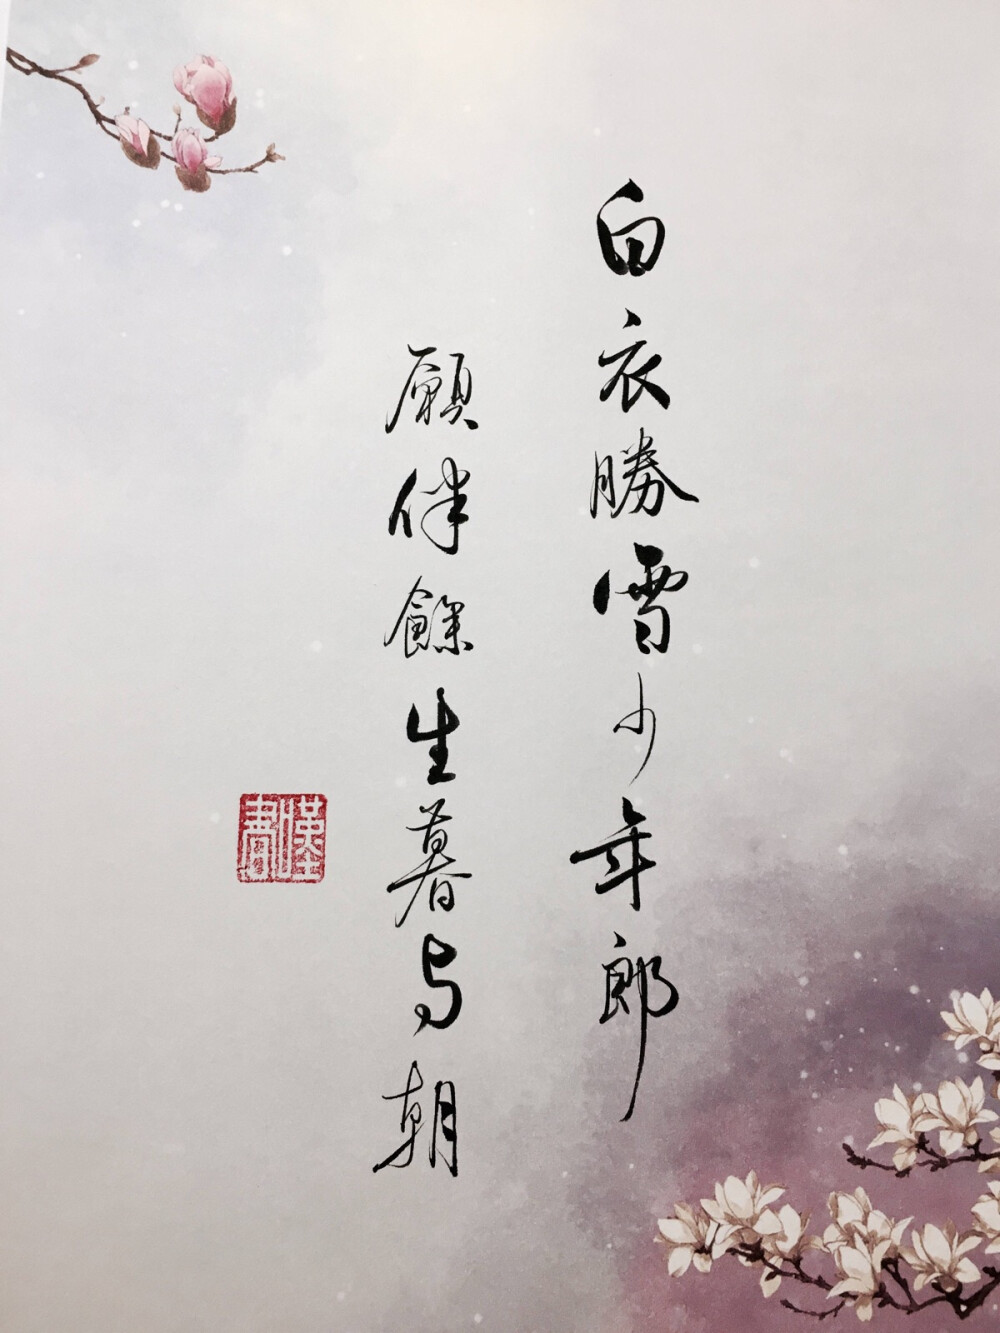 白衣勝雪少年郎
願伴餘生暮与朝